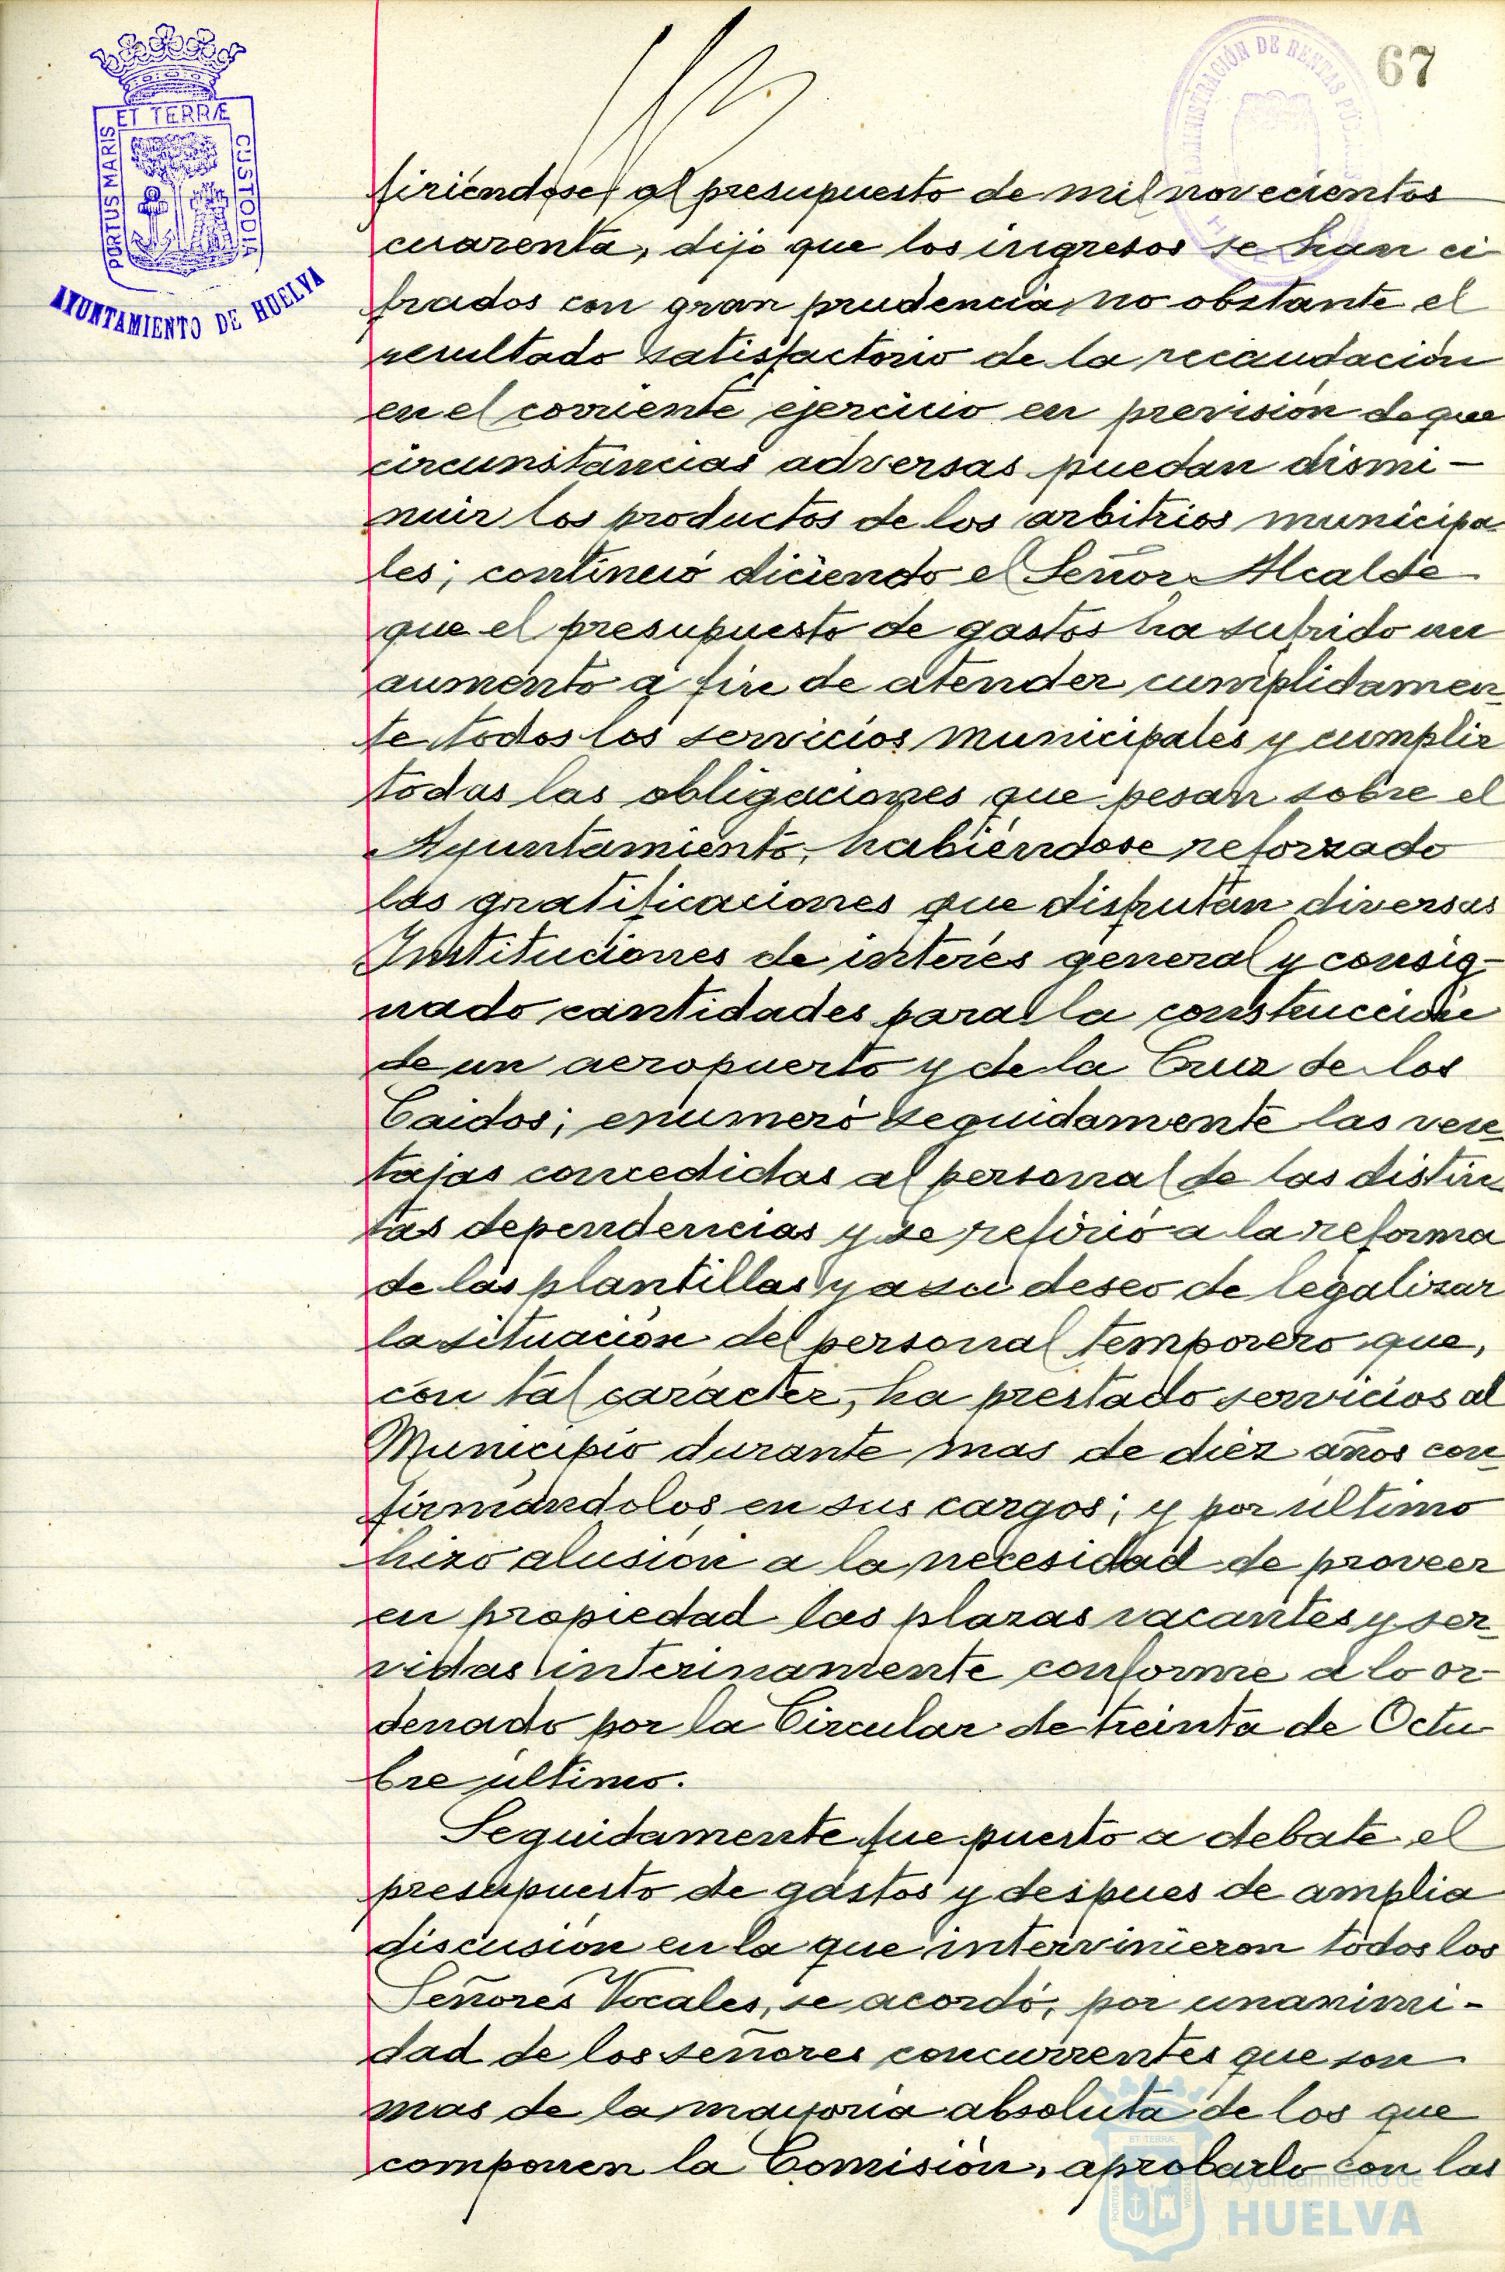 67
ADMINISTRACIÓN DE RENTAS PÚBLICAS
PORTUS MARIS ET TERRÆ CUSTODIA
AYUNTAMIENTO DE HUELVA
firiéndose al presupuesto de mil novecientos
cuarenta, dijo que los ingresos se han ci
frados con gran prudencia, no obstante el
resultado satisfactorio de la recaudación
en el corriente ejercicio en previsión de que
circunstancias adversas puedan dismi-
nuir los productos de los arbitrios municipa
les; continuó diciendo el Señor Alcalde
que el presupuesto de gastos ha sufrido un
aumento a fin de atender cumplidamen-
te todos los servicios municipales y cumplir
todas las obligaciones que pesan sobre el
Ayuntamiento, habiéndose reforzado
las gratificaciones que disfrutan diversas
Instituciones de interés general y consig-
nado cantidades para la construcción
de un aeropuerto y de la Cruz de los
Caidos; enumeró seguidamente las ven-
tajas concedidas al personal de las distin-
tas dependencias y se refirió a la reforma
de las plantillas y a su deseo de legalizar
la situación del personal temporero que,
con tal carácter, ha prestado servicios al
Municipio durante mas de diez años con-
firmándolos en sus cargos; y por último
hizo alusión a la necesidad de proveer
en propiedad las plazas vacantes y ser-
vidas interinamente conforme a lo or-
denado por la Circular de treinta de Octu-
bre último.
Seguidamente fue puesto a debate el
presupuesto de gastos y despues de amplia
discusión en la que intervinieron todos los
Señores Vocales, se acordó, por unanimi-
dad de los señores concurrentes que son
mas de la mayoría absoluta de los que
componen la Comisión, aprobarlo con las
Ayuntamiento de
HUELVA